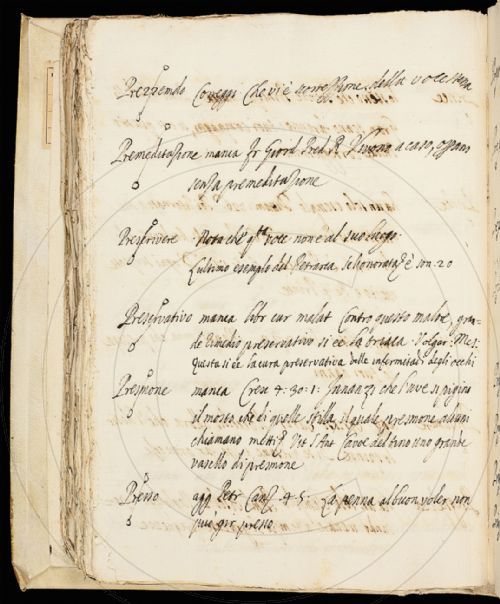 Prezzemolo Coreggi che vi è correzzione della voce
Premeditazione manca fr Giord Pred. R. Vivono a caso, oprano
senza premeditazione
Prescrivere Nota che qta voce non è al suo luogo
L'ultimo esemplo del Petrarca, è son. 20
Preservativo manca libr cur malat Contro questo male, gran-
de rimedio preservativo si è la Volgar: Mes.
questa si è la cura preservativa delle infermitadi degli occhi
Presmone manca Cresc 4: 30: 1: Innanzi che l'uve si pigino
il mosto che di quelle stilla, il quale presmone alcuni
chiamano Vit S Ant Cavoe del tino uno grande
vasello di presmone
Presso agg Petr Canz 4. 5: La penna al buon voler non
può gir presso